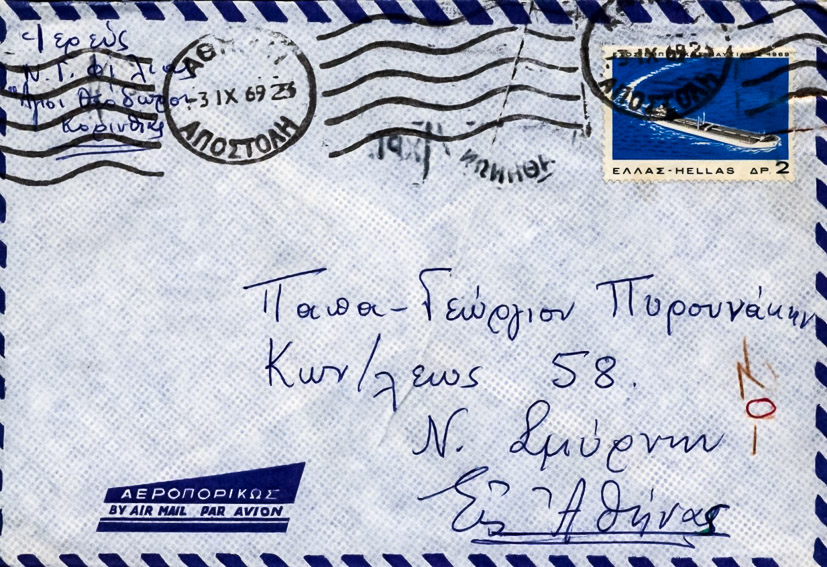 Ἱερεύς
Ν. Γ. Φί λιας
Ἅγιοι Θεόδωροι
Κορινθίας
ΑΘΗΝΑΙ
-3 IX 69 23
ΑΠΟΣΤΟΛΗ
-3 IX 69 23
ΑΠΟΣΤΟΛΗ
ΕΛΛΑΣ-HELLAS ΔΡ. 2
ΑΘΗΝΩΝ
Παπα-Γεώργιον Πυρουνάκην
Κων/λεως 58.
Ν. Σμύρνην
Εἰς Ἀθήνας
ΑΕΡΟΠΟΡΙΚΩΣ
BY AIR MAIL PAR AVION